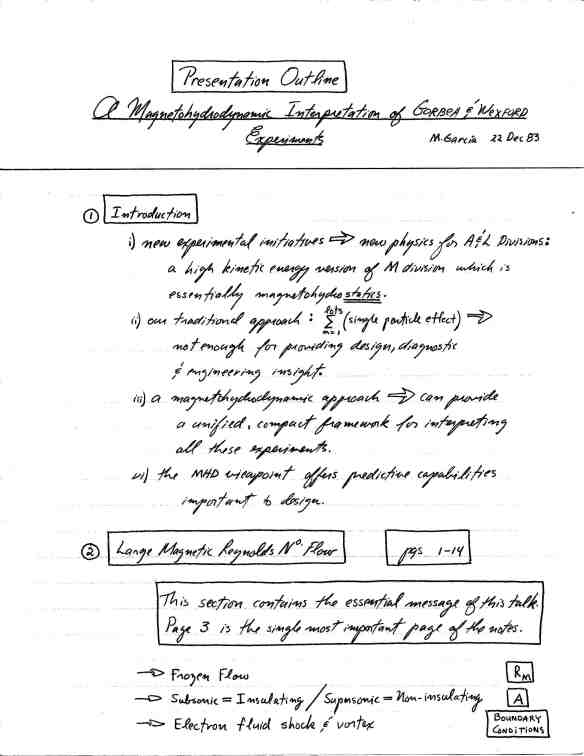 Presentation Outline
A Magnetohydrodynamic Interpretation of GORBEA & WEXFORD
Experiments
M. Garcia 22 Dec 83
① Introduction
i) new experimental initiatives ⇒ new physics for A&L Divisions:
a high kinetic energy version of M division which is
essentially magnetohydrostatics.
ii) our traditional approach : lots Σ m=1 (single particle effect) ⇒
not enough for providing design, diagnostic
& engineering insight.
iii) a magnetohydrodynamic approach ⇒ can provide
a unified, compact framework for interpreting
all these experiments.
vi) the MHD viewpoint offers predictive capabilities
important to design.
② Large Magnetic Reynolds Nº. Flow pgs 1-14
This section contains the essential message of this talk.
Page 3 is the single most important page of the notes.
→ Frozen Flow RM
→ Subsonic = Insulating / Supersonic = Non-insulating A
→ Electron fluid shock & vortex BOUNDARY
CONDITIONS